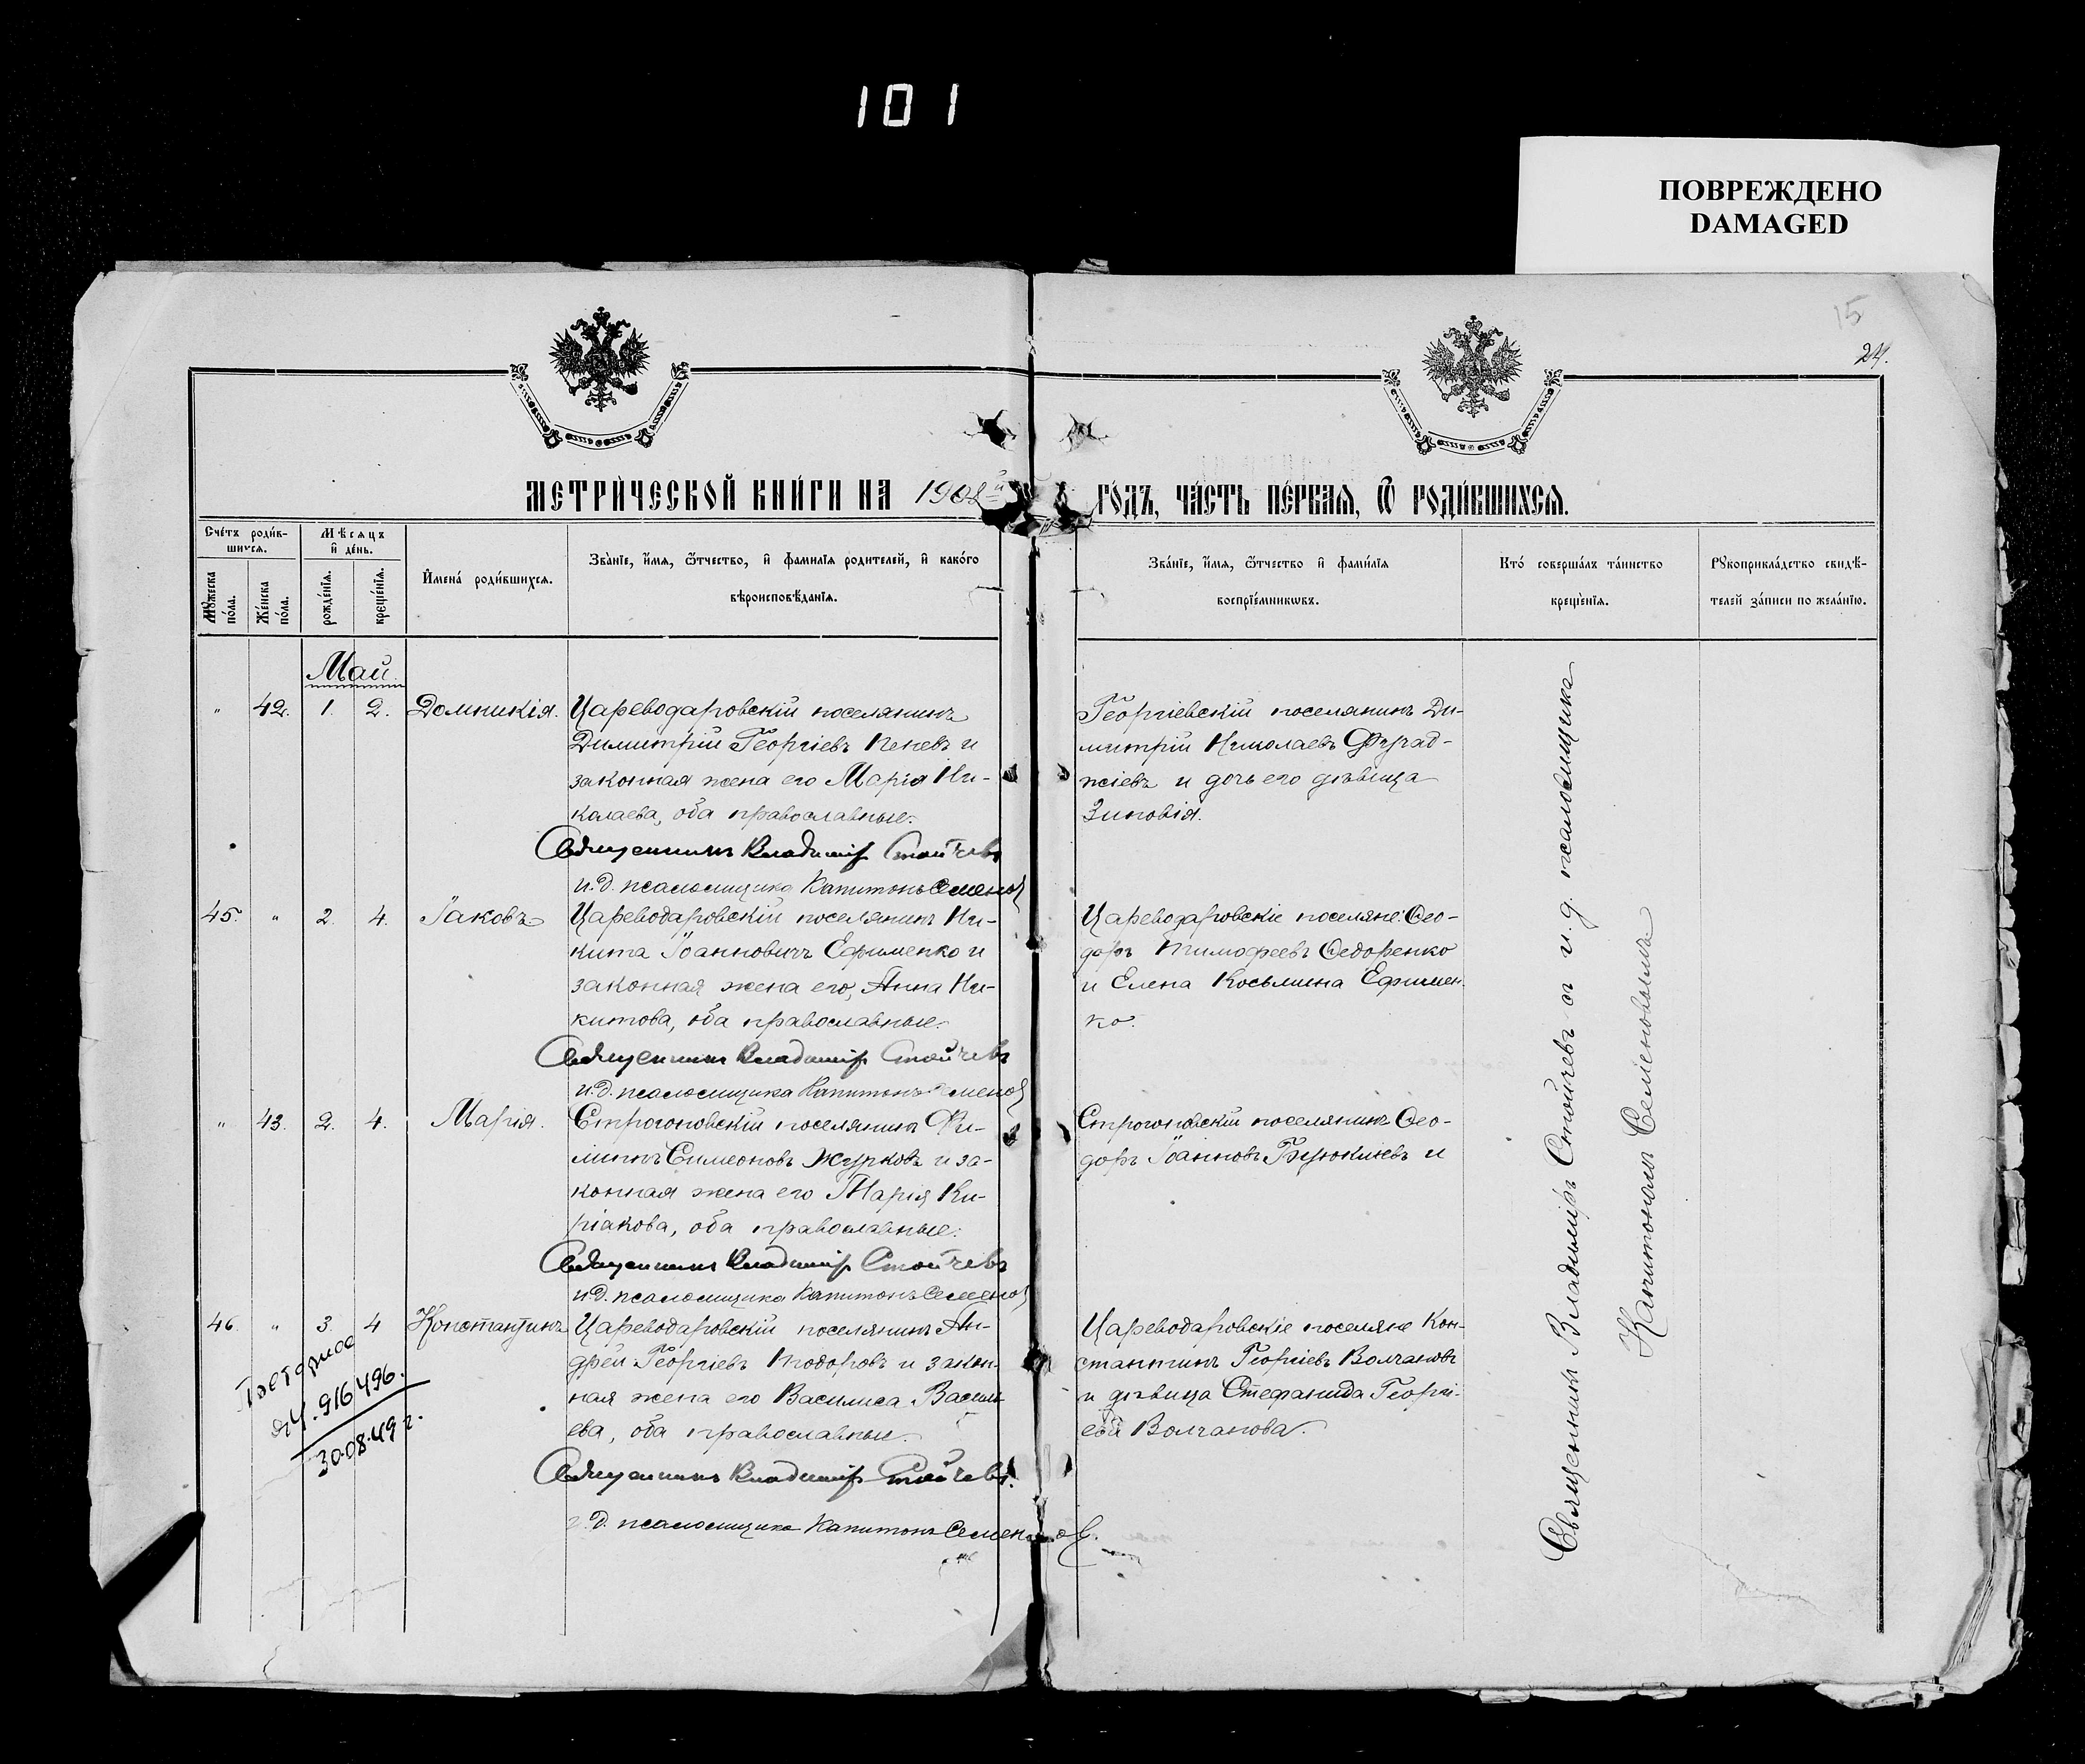 101
ПОВРЕЖДЕНО
DAMAGED
15
24.
МЕТРИЧЕСКОЙ КНИГИ НА 1902й
ГОДЪ, ЧАСТЬ ПЕРВАЯ, Ѿ РОДИВШИХСЯ.
Счетъ родив-
шихся.
Мѣсяцъ
и день.
Мужеска
пола.
Женска
пола.
рожденія.
крещенія.
Имена родившихся.
Званіе, имя, ѿтчество, и фамилія родителей, и какого
вѣроисповѣданія.
Званіе, имя, ѿтчество и фамилія
воспріемникѡвъ.
Кто совершалъ таинство
крещенія.
Рукоприкладство свидѣ-
телей записи по желанію.
Май.
„ 42. 1. 2. Домникія. Цареводаровскій поселянинъ
Димитрій Георгіевъ Пеневъ и
законная жена его Марія Ни-
колаева, оба православные.
Священникъ Владиміръ Стойчевъ
и.д. псаломщика Капитонъ Семенов
Георгіевскій поселянинъ Ди-
митрій Николаевъ
жіевъ и дочь его дѣвица
Зиновія.
45. „ 2. 4. Іаковъ Цареводаровскій поселянинъ Ни-
кита Іоанновичъ Ефименко и
законная жена его, Анна Ни-
китова, оба православные.
Священникъ Владиміръ Стойчевъ
и.д. псаломщика Капитонъ Семенов
Цареводаровскіе поселяне: Ѳео-
доръ Тимофеевъ Ѳедоренко
и Елена Косьмина Ефимен-
ко.
„ 43. 2. 4. Марія. Строгоновскій поселянинъ Фи-
липпъ Симеоновъ Журковъ и за-
конная жена его Марія Ки-
ріакова, оба православные.
Священникъ Владиміръ Стойчевъ
и.д. псаломщика Капитонъ Семенов
Строгоновскій поселянинъ Ѳео-
доръ Іоанновъ и
46. „ 3. 4 Константинъ Цареводаровскій поселянинъ Ан-
дрей Георгіевъ Тодоровъ и закон-
ная жена его Василиса Василь-
ева, оба православные.
Священникъ Владиміръ Стойчевъ.
и.д. псаломщика Капитонъ Семенов.
Цареводаровскіе поселяне Кон-
стантинъ Георгіевъ Волчановъ
и дѣвица Стефанида Георгі-
ева Волчанова.
916496.
30.08.49 г.
Священникъ Владиміръ Стойчевъ и и. д. псаломщика
Капитономъ Семеновымъ